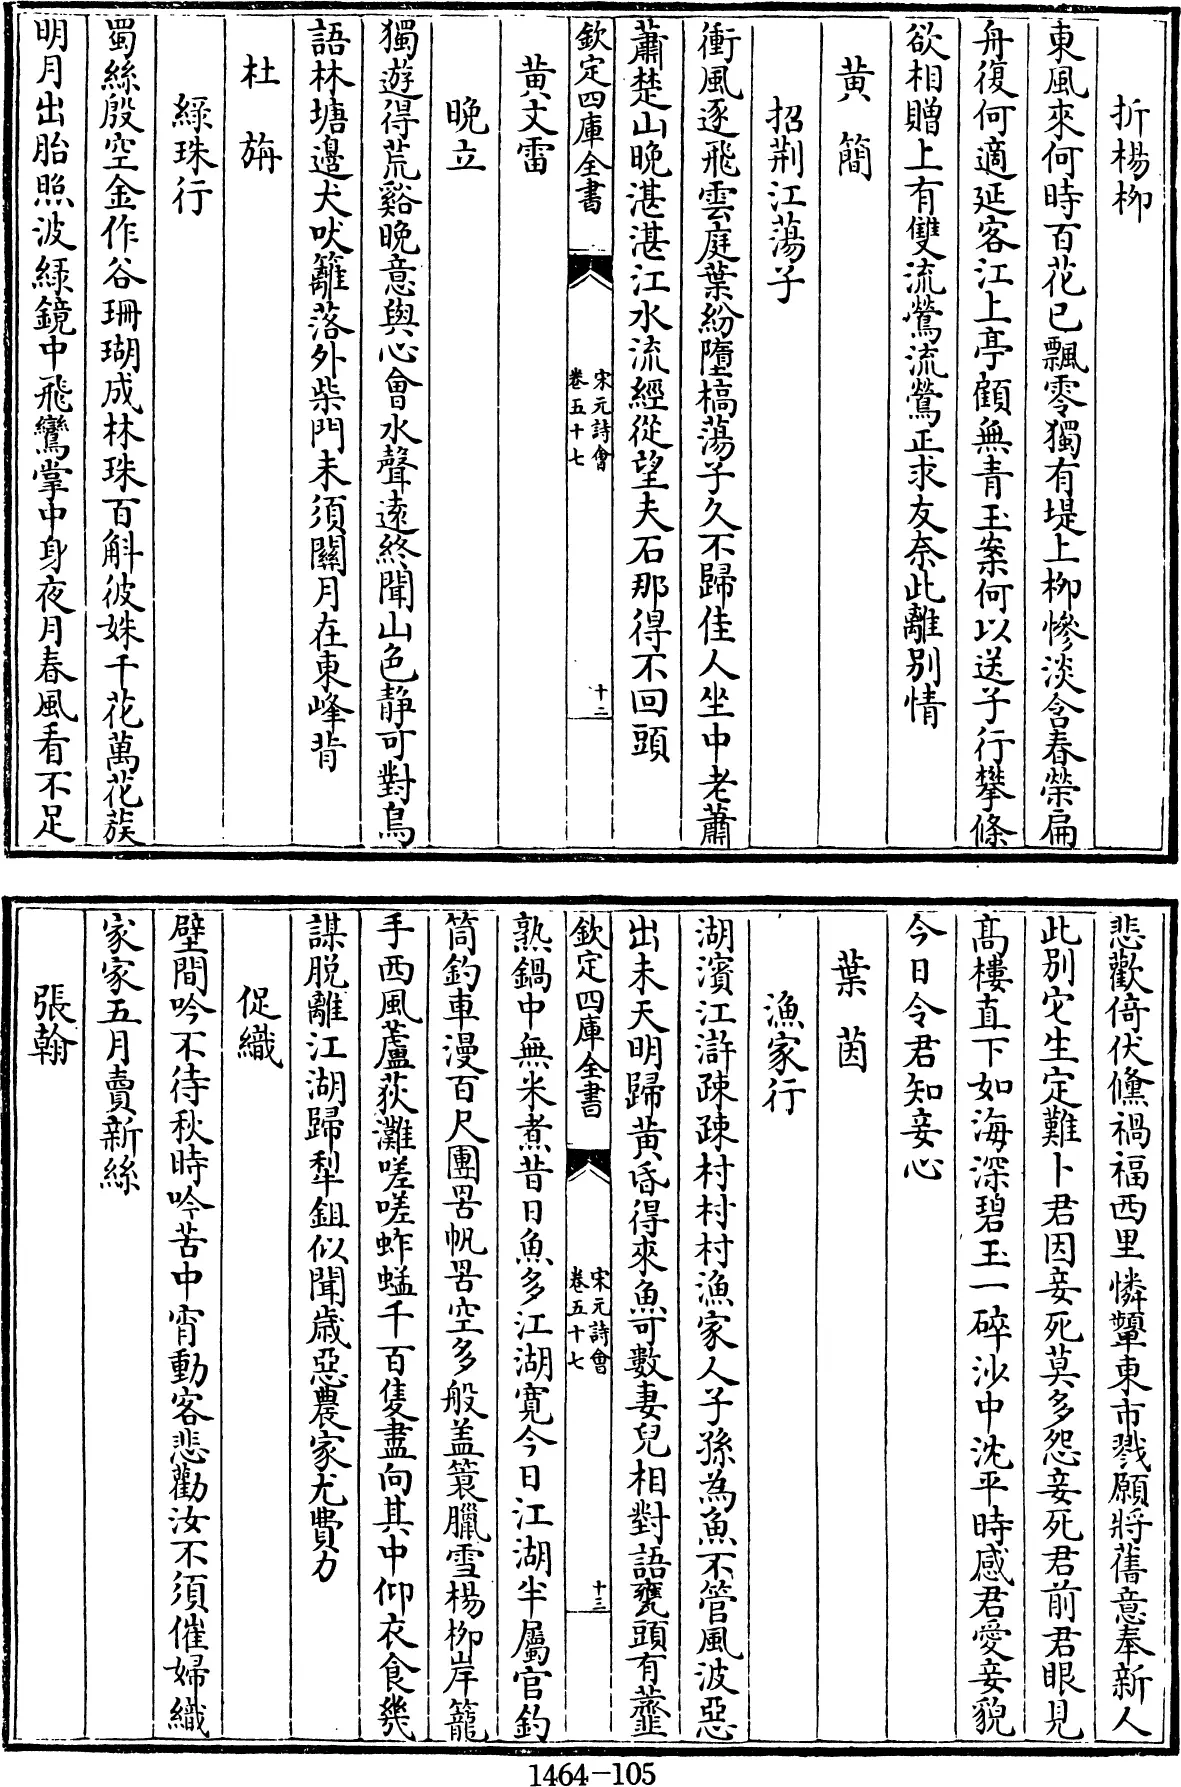 折楊栁
東風來何時百花已飄零獨有堤上栁慘淡含春榮扁
舟復何適延客江上亭顧無青玉案何以送子行攀條
欲相贈上有雙流鶯流鶯正求友奈此離别情
黄簡
招荆江蕩子
衝風逐飛雲庭葉紛墮槁蕩子久不歸佳人坐中老蕭
蕭楚山晩湛湛江水流經從望夫石那得不回頭
欽定四庫全書
宋元詩會
卷五十七
十二
黄文雷
晩立
獨遊得荒谿晩意與心會水聲逺終聞山色静可對鳥
語林塘邉犬吠籬落外柴門未須闗月在東峰背
杜旃
緑珠行
蜀絲殷空金作谷珊瑚成林珠百斛彼姝千花萬花蔟
明月出胎照波緑鏡中飛鸞掌中身夜月春風看不足
悲歡倚伏儵禍福西里憐顰東市戮願將舊意奉新人
此别它生定難卜君因妾死莫多怨妾死君前君眼見
髙樓直下如海深碧玉一碎沙中沈平時感君愛妾貌
今日令君知妾心
葉茵
漁家行
湖濱江滸疎疎村村村漁家人子孫為魚不管風波惡
出未天明歸黄昏得來魚可數妻兒相對語甕頭有虀
欽定四庫全書
宋元詩會
卷五十七
十三
熟鍋中無米煮昔日魚多江湖寛今日江湖半屬官釣
筒釣車漫百尺團罟帆罟空多般盖簑臘雪楊栁岸籠
手西風蘆荻灘嗟嗟蚱蜢千百隻盡向其中仰衣食幾
謀脱離江湖歸犁鉏似聞歲惡農家尤費力
促織
壁間吟不待秋時吟苦中宵動客悲勸汝不須催婦織
家家五月賣新絲
張翰
1464-105